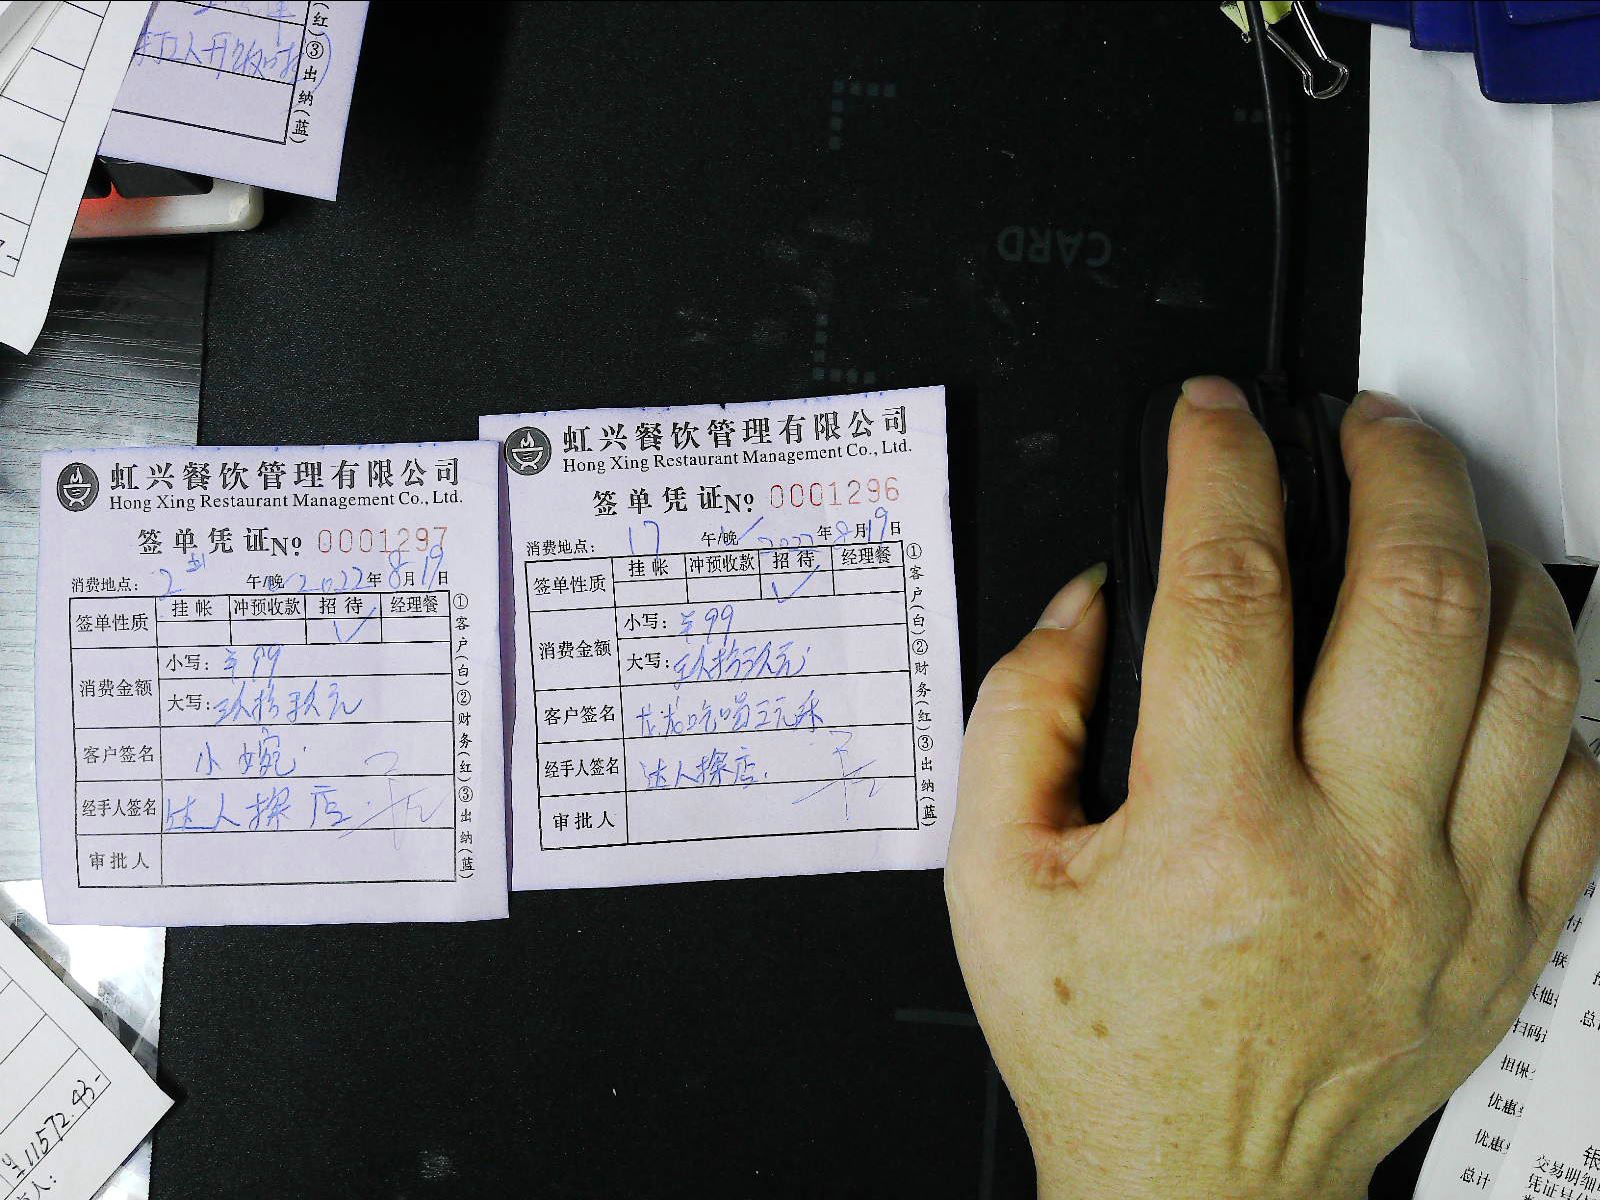 (红)③出纳(蓝)
CARD
虹兴餐饮管理有限公司
Hong Xing Restaurant Management Co., Ltd.
签单凭证№ 0001297
消费地点: 2 午/晚 2022年8月19日
签单性质 挂帐 冲预收款 招待 经理餐
✓
消费金额 小写: ¥99
大写: 玖拾玖元
客户签名 小婉
经手人签名 达人探店
审批人
①客户(白)②财务(红)③出纳(蓝)
虹兴餐饮管理有限公司
Hong Xing Restaurant Management Co., Ltd.
签单凭证№ 0001296
消费地点: 17 午/晚✓ 2022年8月19日
签单性质 挂帐 冲预收款 招待 经理餐
✓
消费金额 小写: ¥99
大写: 玖拾玖元
客户签名 龙龙吃喝
经手人签名 达人探店
审批人
①客户(白)②财务(红)③出纳(蓝)
¥11572.43-
付
联
扫码
担保
优惠
优惠
总计
交易明细